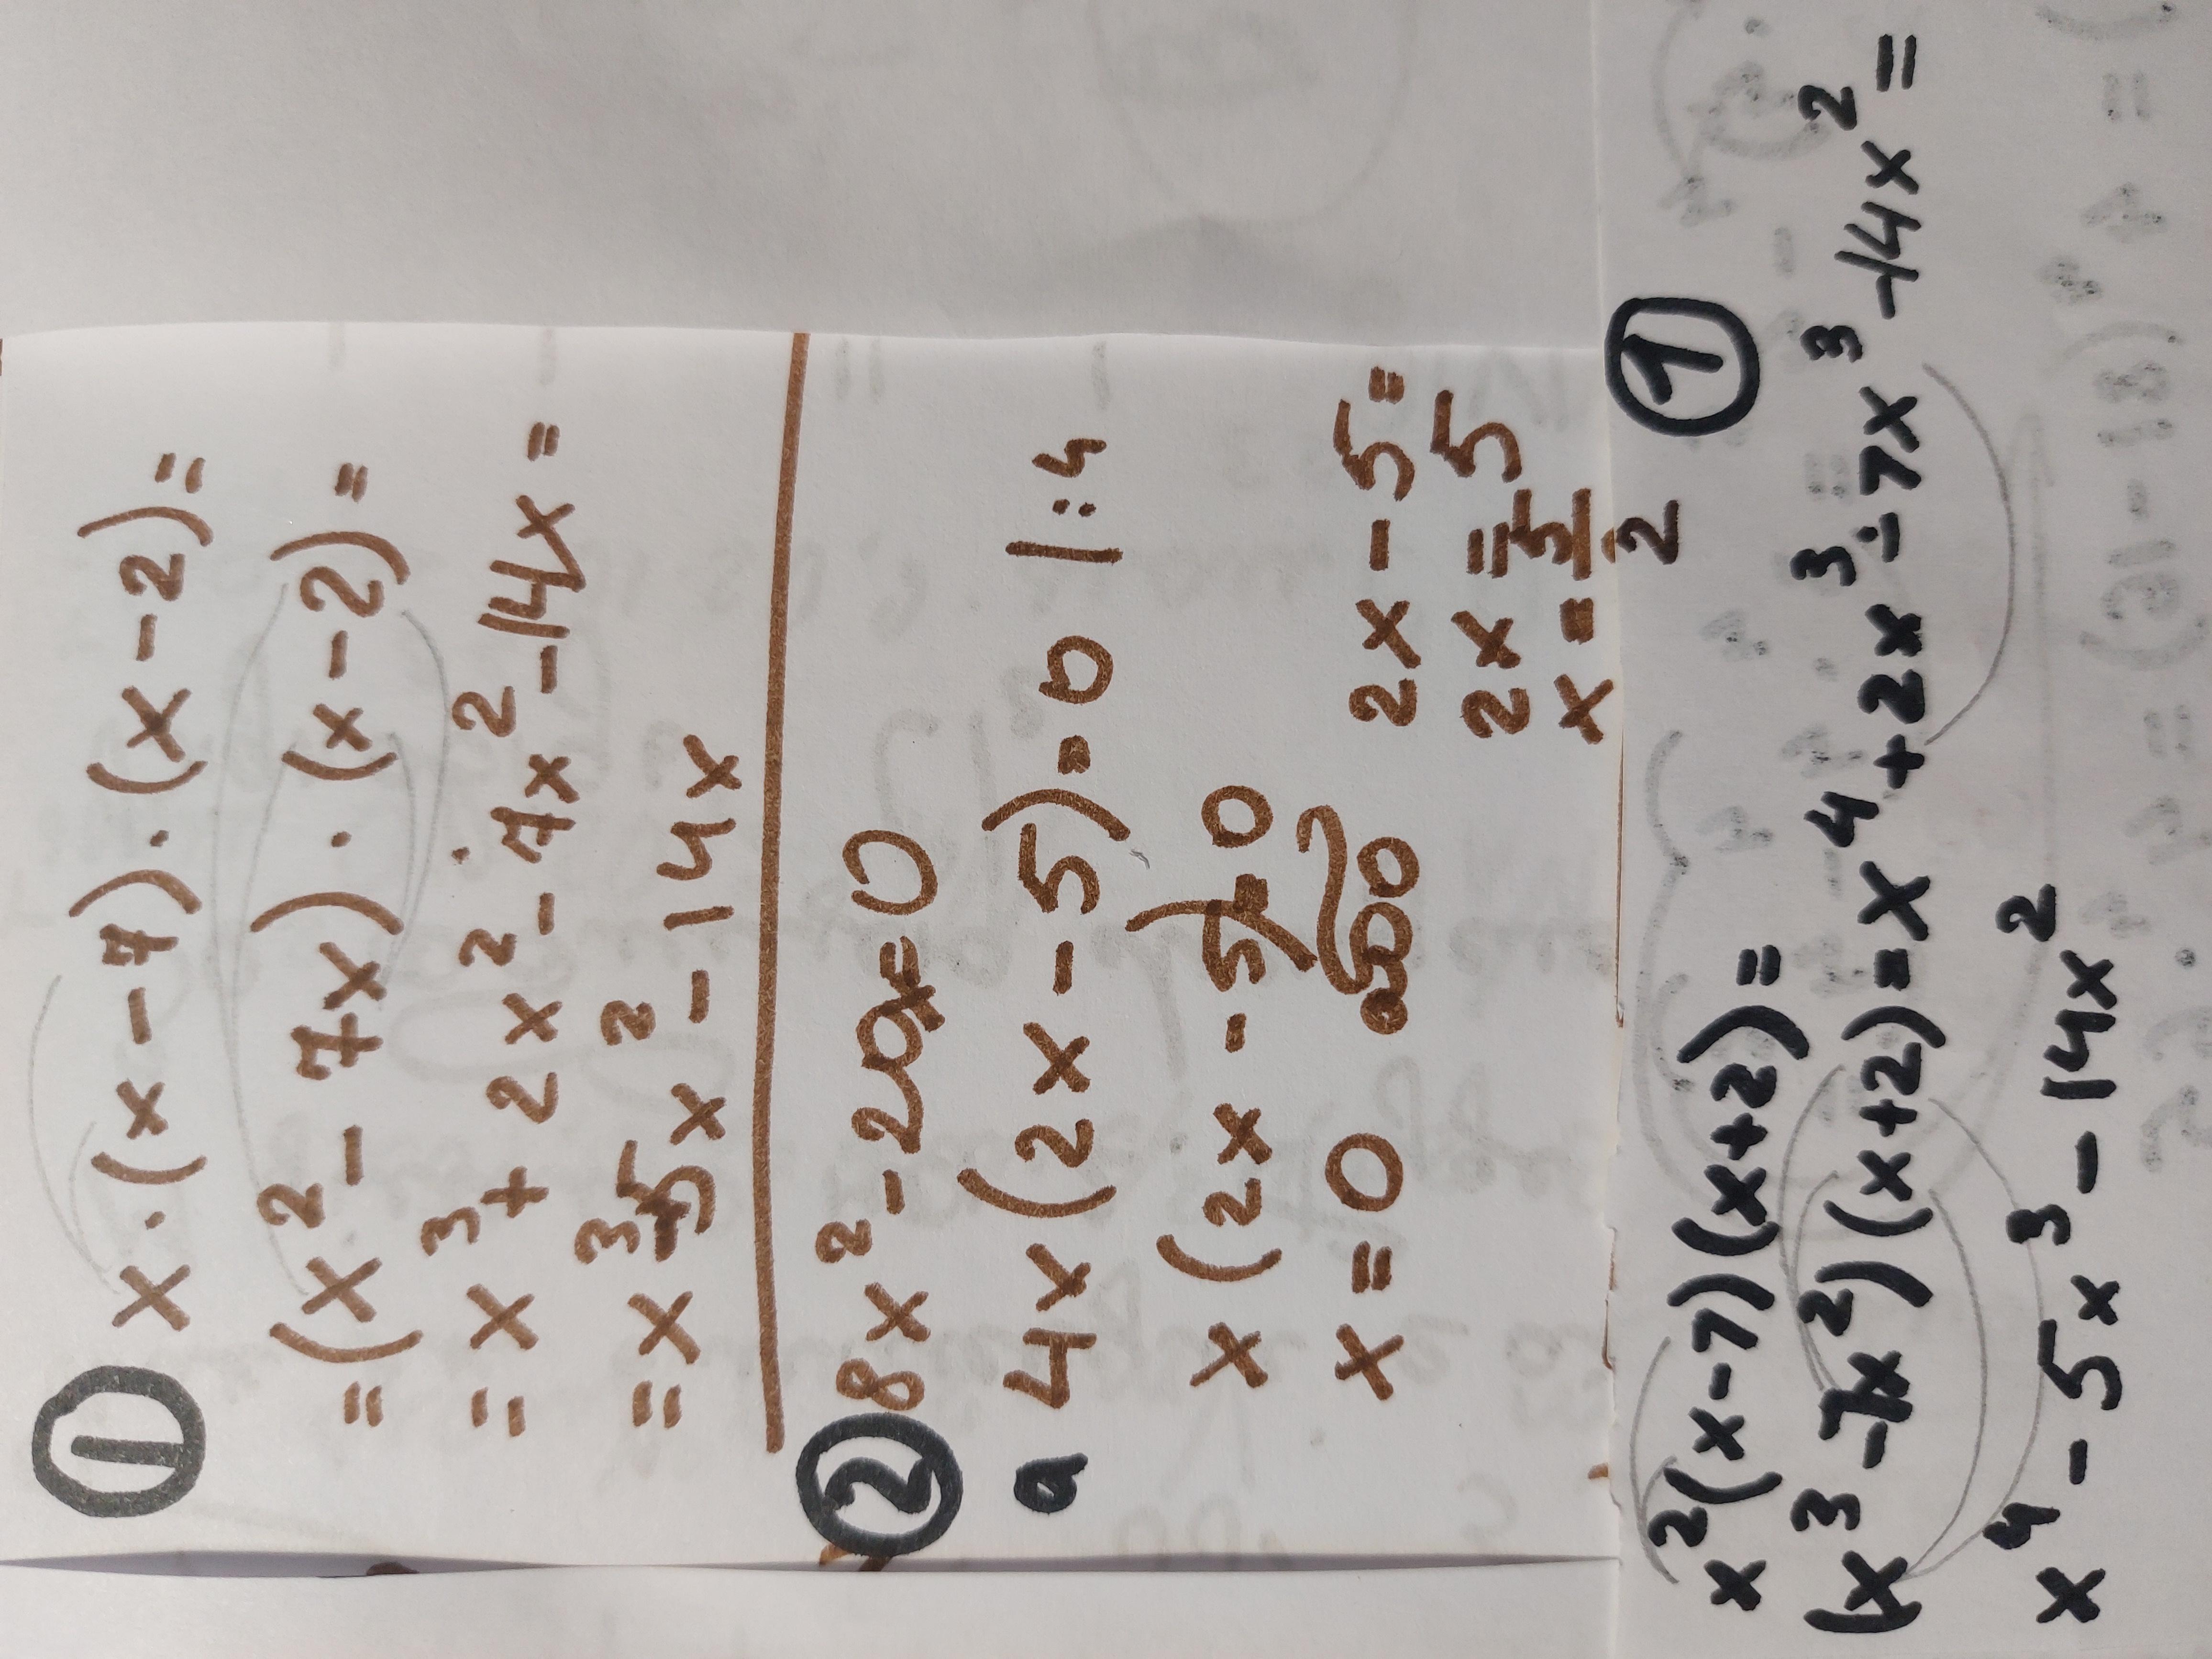 ① x·(x-7)·(x-2)=
=(x²-7x)·(x-2)=
=x³+2x²-7x²-14x=
=x³-5x²-14x
② 8x²-20x=0
a 4x(2x-5)=0 |:4
x(2x-5)=0
x=0
2x-5=
2x=5
x=5/2
①
x²(x-7)(x+2)=
(x³-7x²)(x+2)=x⁴+2x³-7x³-14x²=
x⁴-5x³-14x²